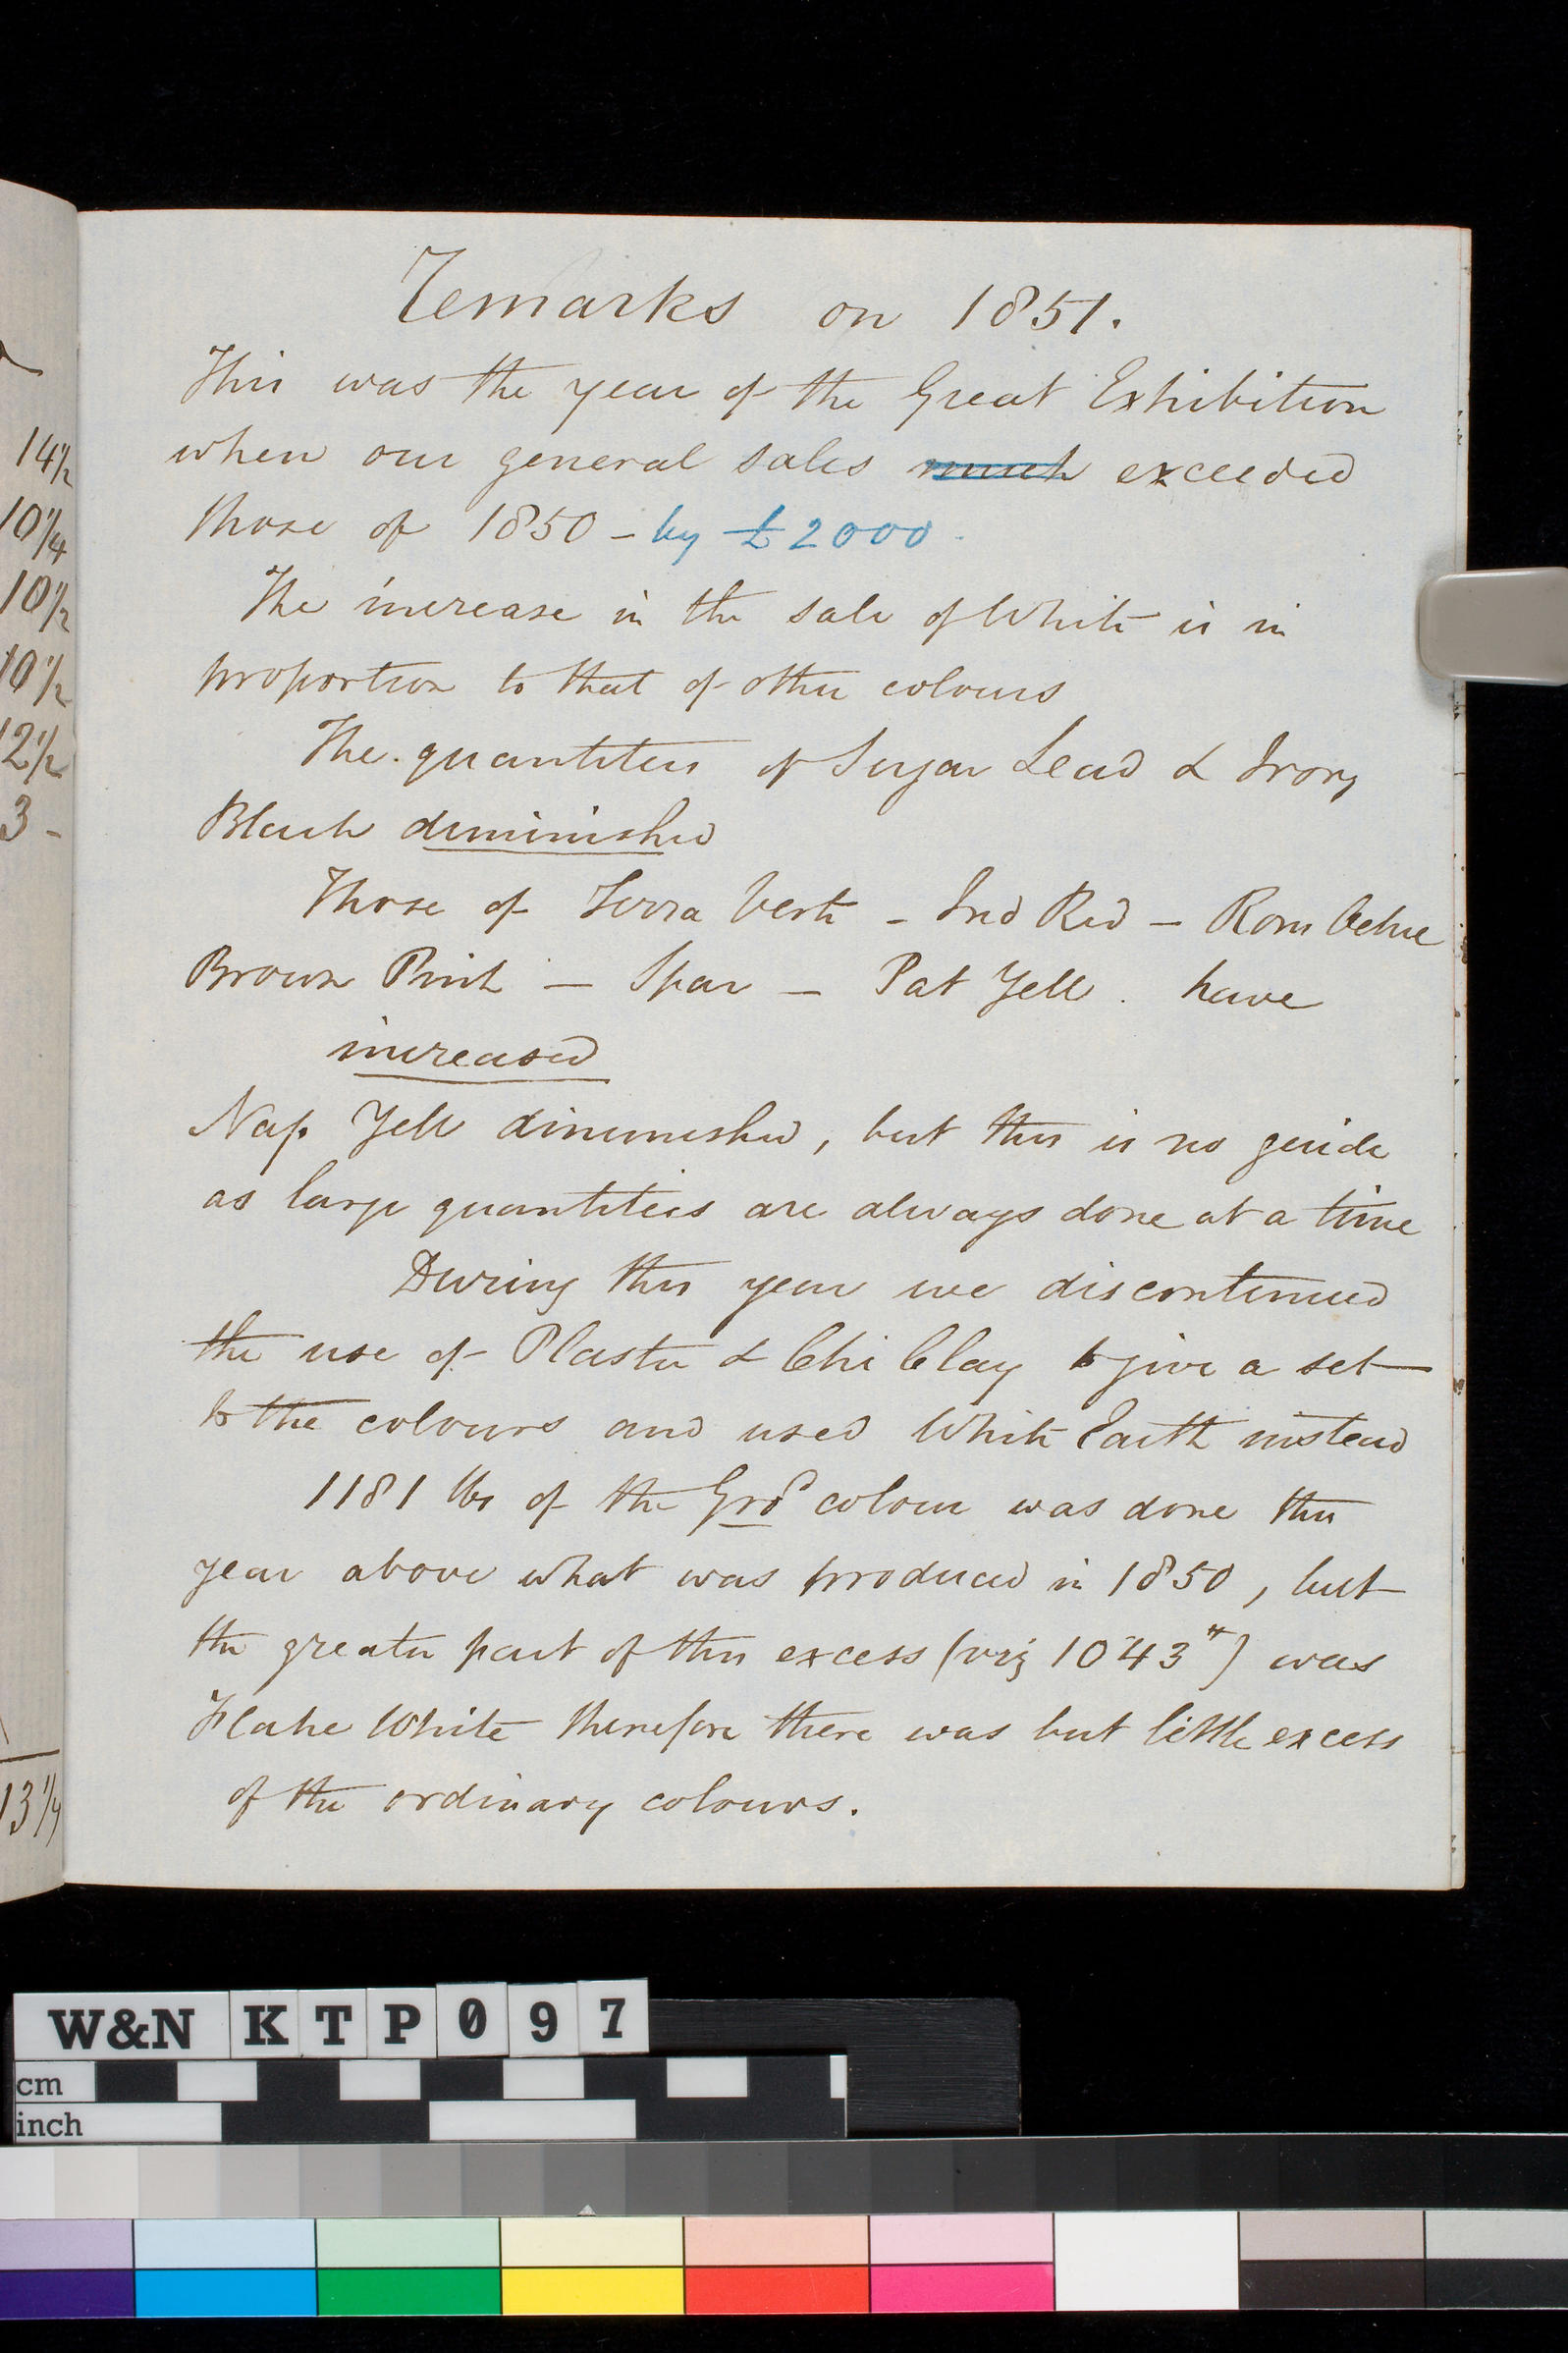 Remarks on 1851.
This was the year of the Great Exhibition
when our general sales much exceeded
those of 1850 - by £2000.
The increase in the sale of White is in
proportion to that of other colours
The quantities of Sugar Lead & Ivory
Black diminished
Those of Terra Vert - Ind Red - Rom Ochre
Brown Pink - Spar - Pat Yell. have
increased
Nap Yell diminished, but this is no guide
as large quantities are always done at a time
During this year we discontinued
the use of Plaster & Chi Clay to give a set
to the colours and used White Earth instead
1181 lbs of the Grd colour was done this
year above what was produced in 1850, but
the greater part of this excess (viz 1043 #) was
Flake White therefore there was but little excess
of the ordinary colours.
14½
10¼
10½
10½
12½
3 -
13¼
W&N KTP097
cm
inch